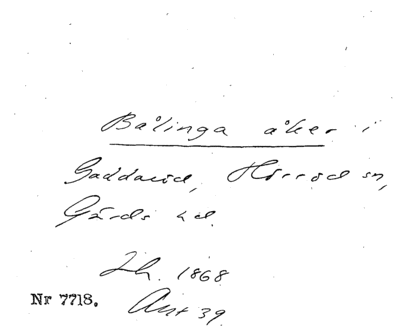 Bålinga åker i
Gaddaröd, Hörröd sn,
Gärds hd.
Jh. 1868
Nr 7718. Ant 39.